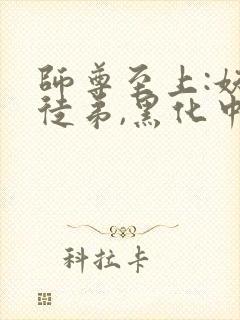 師尊至上:妖
徒弟,黑化中
科拉卡